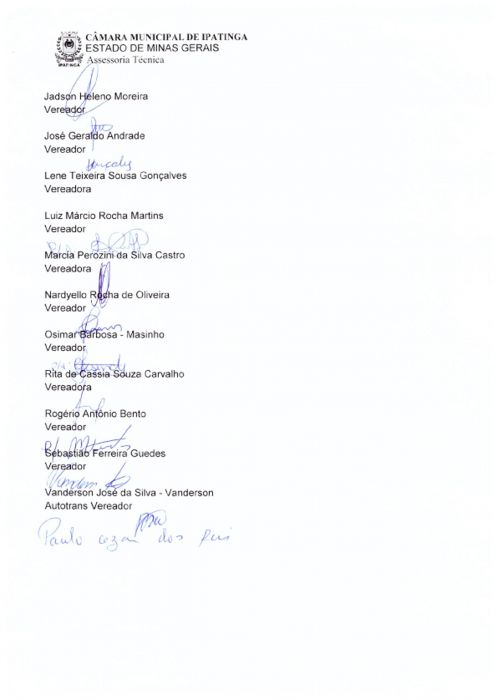 CÂMARA MUNICIPAL DE IPATINGA
ESTADO DE MINAS GERAIS
Assessoria Técnica
IPATINGA
Jadson Heleno Moreira
Vereador
José Geraldo Andrade
Vereador
Lene Teixeira Sousa Gonçalves
Vereadora
Luiz Márcio Rocha Martins
Vereador
Marcia Perozini da Silva Castro
Vereadora
Nardyello Rocha de Oliveira
Vereador
Osimar Barbosa - Masinho
Vereador
Rita de Cassia Souza Carvalho
Vereadora
Rogério Antônio Bento
Vereador
Sebastião Ferreira Guedes
Vereador
Vanderson José da Silva - Vanderson
Autotrans Vereador
Paulo cezar dos Reis